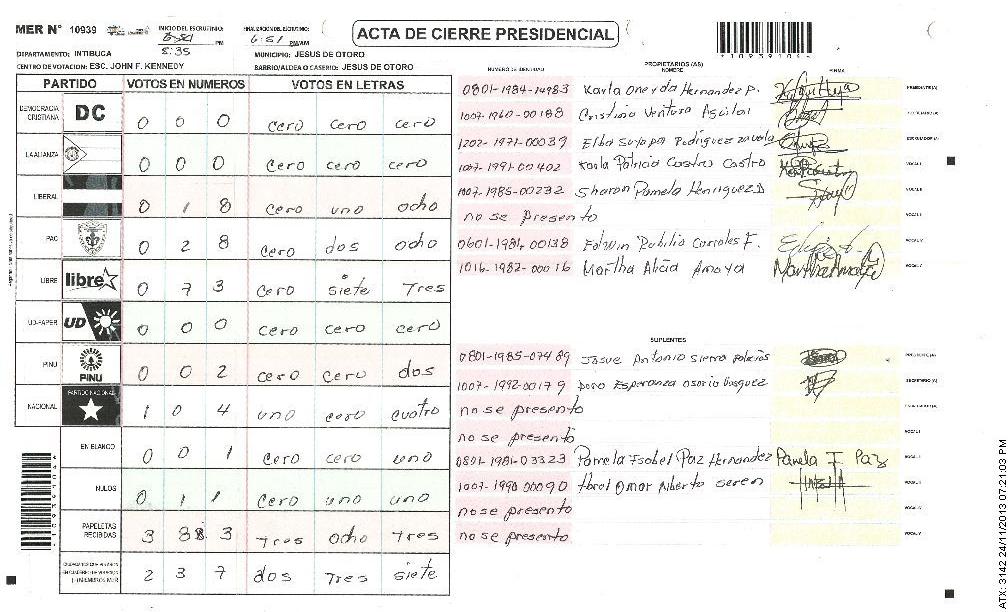 MER N° 10939
INICIO DEL ESCRUTINIO: PM 5:35
FINALIZACION DEL ESCRUTINIO: 6:51 PM/AM
ACTA DE CIERRE PRESIDENCIAL
10939109
DEPARTAMENTO: INTIBUCA
MUNICIPIO: JESUS DE OTORO
CENTRO DE VOTACION: ESC. JOHN F. KENNEDY
BARRIO/ALDEA O CASERIO: JESUS DE OTORO
PARTIDO VOTOS EN NUMEROS VOTOS EN LETRAS
DEMOCRACIA CRISTIANA DC 0 0 0 cero cero cero
LA ALIANZA 0 0 0 cero cero cero
LIBERAL 0 1 8 cero uno ocho
PAC 0 2 8 cero dos ocho
LIBRE libre 0 7 3 cero siete Tres
UD-FAPER UD 0 0 0 cero cero cero
PINU PINU 0 0 2 cero cero dos
NACIONAL PARTIDO NACIONAL 1 0 4 uno cero cuatro
EN BLANCO 0 0 1 cero cero uno
NULOS 0 1 1 cero uno uno
PAPELETAS RECIBIDAS 3 8 3 Tres ocho Tres
2 3 7 dos Tres siete
NUMERO DE IDENTIDAD PROPIETARIOS (AS) NOMBRE FIRMA
0801-1984-14983 Karla Oneyda Hernandez P. PRESIDENTE(A)
1007-1960-00188 Cristina Ventura Aguilar SECRETARIO(A)
1202-1971-00039 Elba Suyapa Rodriguez zavala ESCRUTADOR(A)
1007-1991-00402 Karla Patricia Castro Castro VOCAL I
1007-1985-00232 Sharon Pamela Henriquez D VOCAL II
no se presento VOCAL III
0601-1981-00138 Edwin Rubilio Corrales F. VOCAL IV
1016-1982-00016 Martha Alicia Amaya VOCAL V
SUPLENTES
0801-1985-07489 Josue Antonio Sierra PRESIDENTE(A)
1007-1992-00179 Dora Esperanza osorio Vasquez SECRETARIO(A)
no se presento ESCRUTADOR(A)
no se presento VOCAL I
0801-1981-03323 Pamela Isabel Paz Hernandez Pamela I Paz VOCAL II
1007-1990-00090 Omar Alberto VOCAL III
no se presento VOCAL IV
no se presento VOCAL V
ATX: 3142 24/11/2013 07:21:03 PM